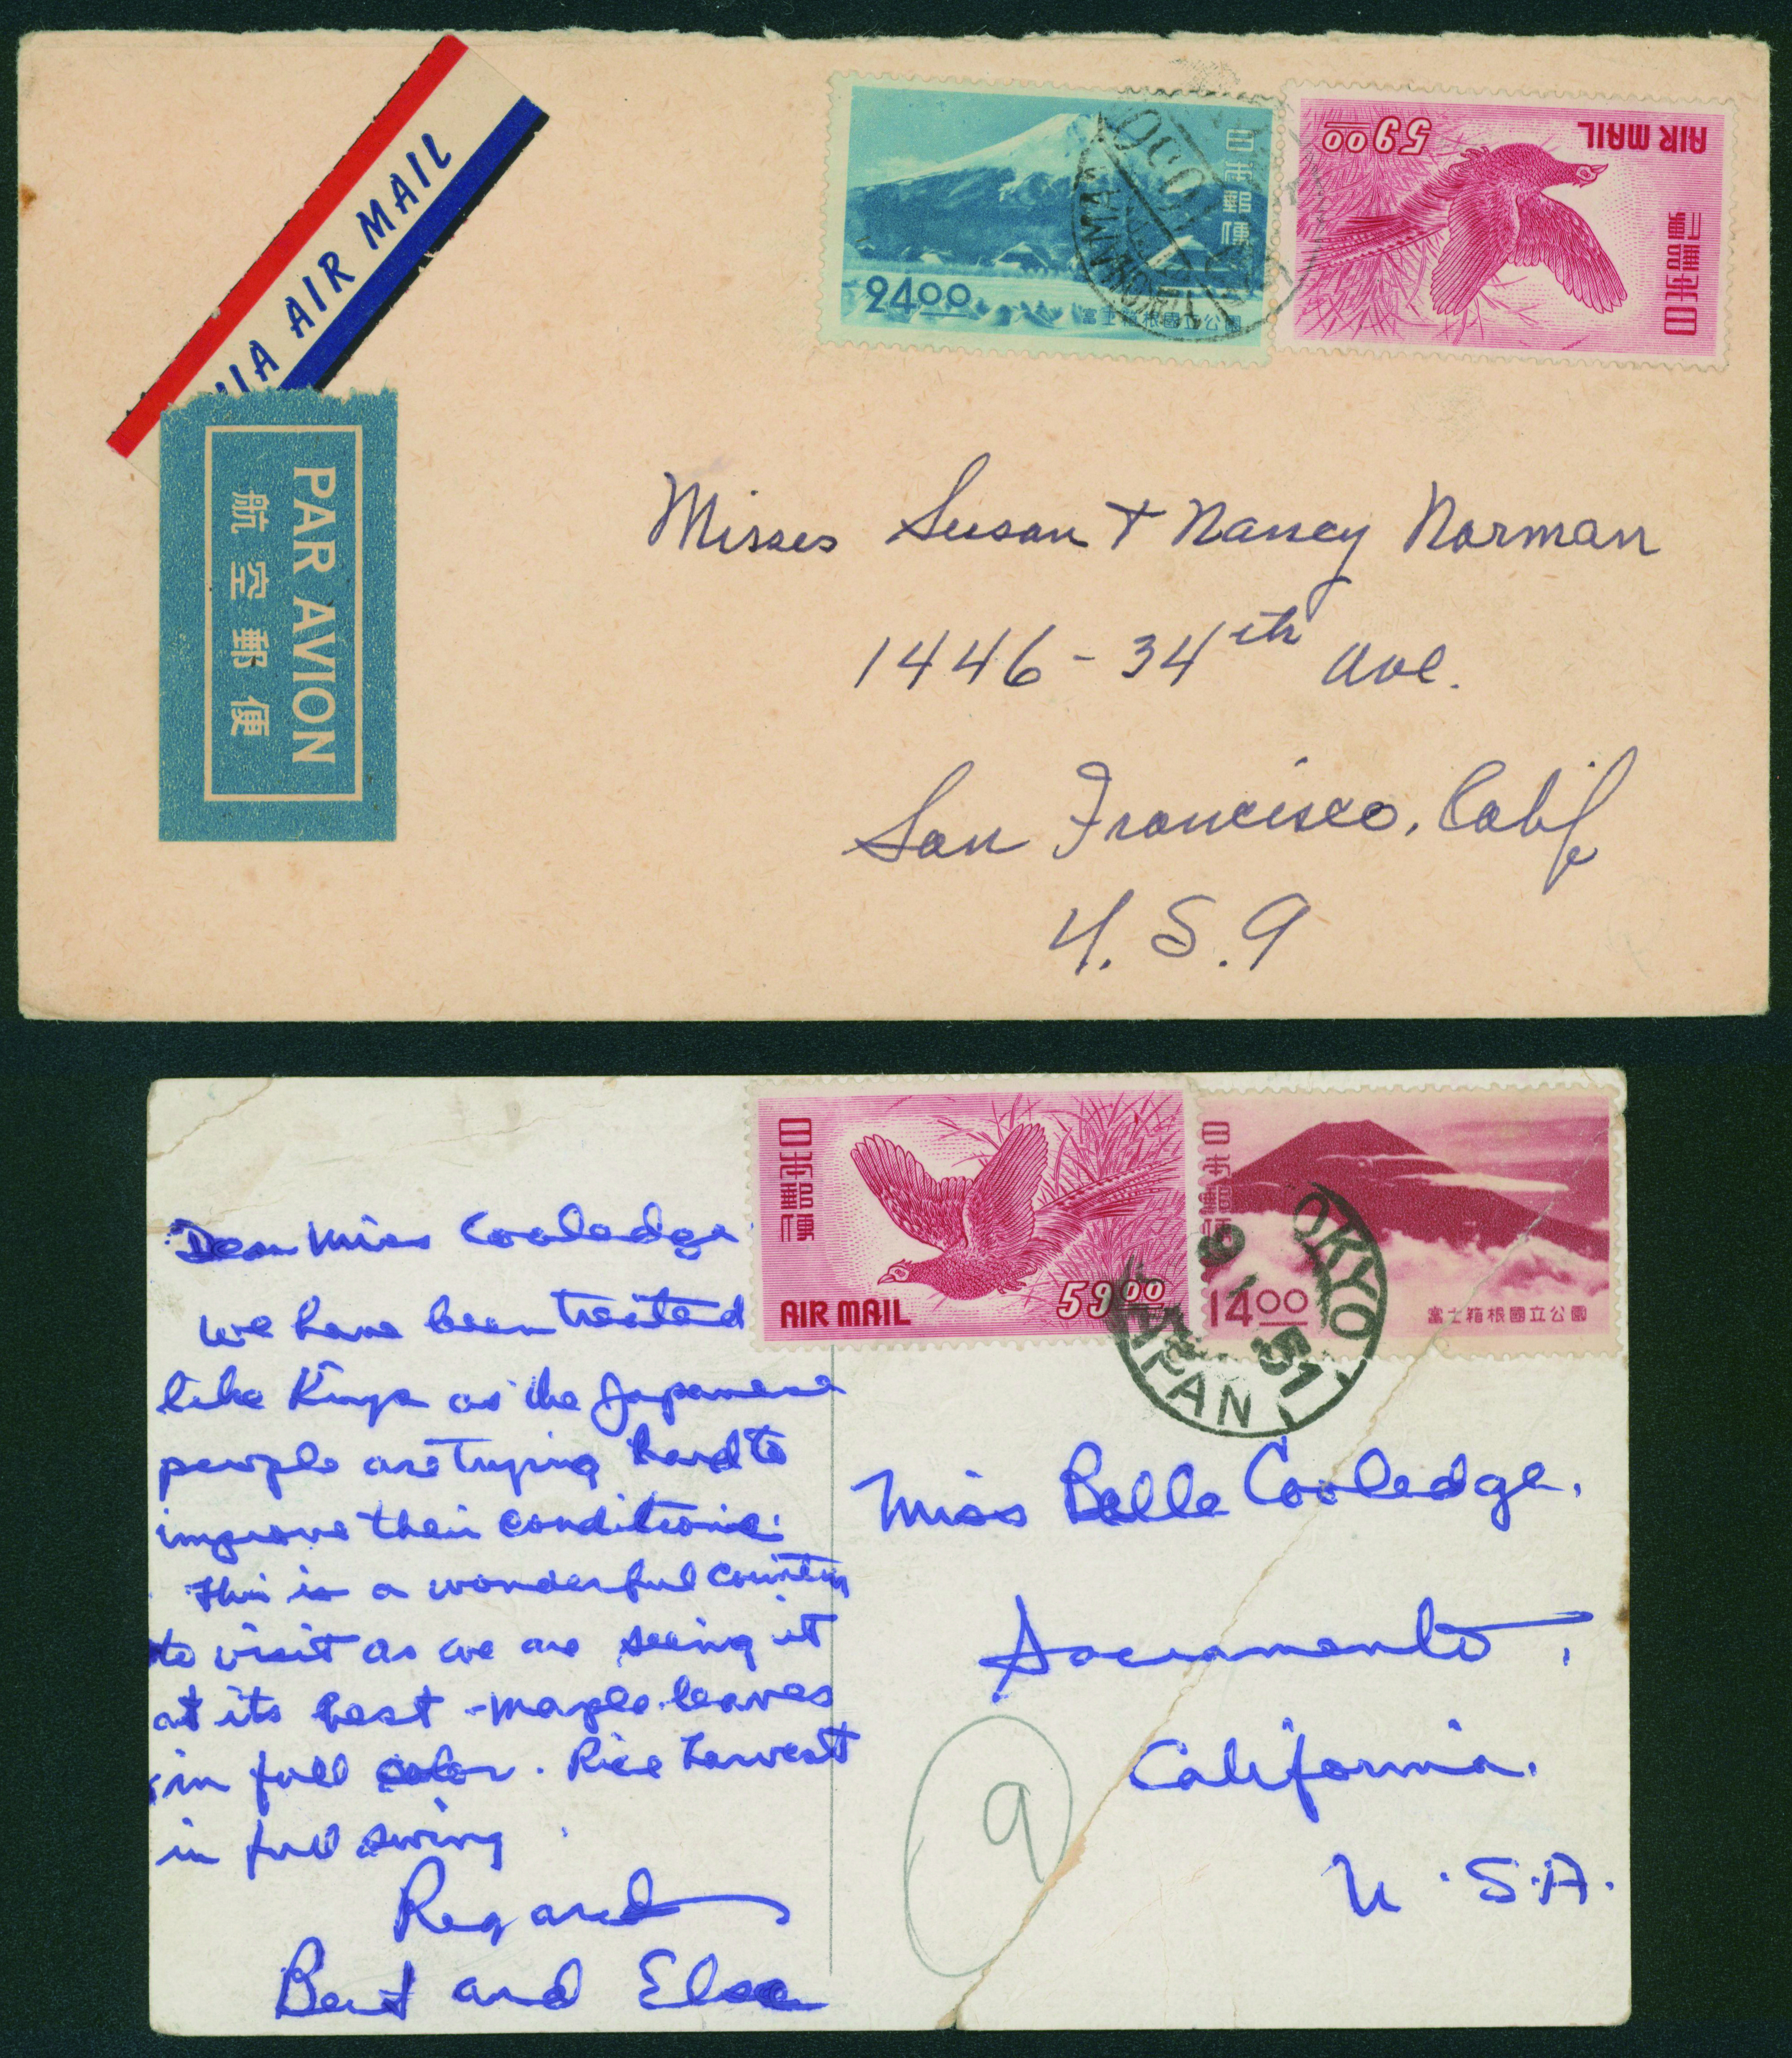 VIA AIR MAIL
PAR AVION
航空郵便
日本郵便
24.00
富士箱根國立公園
YOKOHAMA
AIR MAIL
59.00
日本郵便
Misses Susan + Nancy Norman
1446 - 34th Ave.
San Francisco, Calif
U.S.A
日本郵便
AIR MAIL
59.00
日本郵便
14.00
富士箱根國立公園
TOKYO
51
JAPAN
Dear Miss Cooledge
We have been treated
like Kings as the Japanese
people are trying hard to
improve their conditions.
This is a wonderful country
to visit as we are seeing it
at its best - maple leaves
in full color. Rice harvest
in full swing.
Regards
Bert and Elsa
Miss Belle Cooledge,
Sacramento,
California.
U.S.A.
9